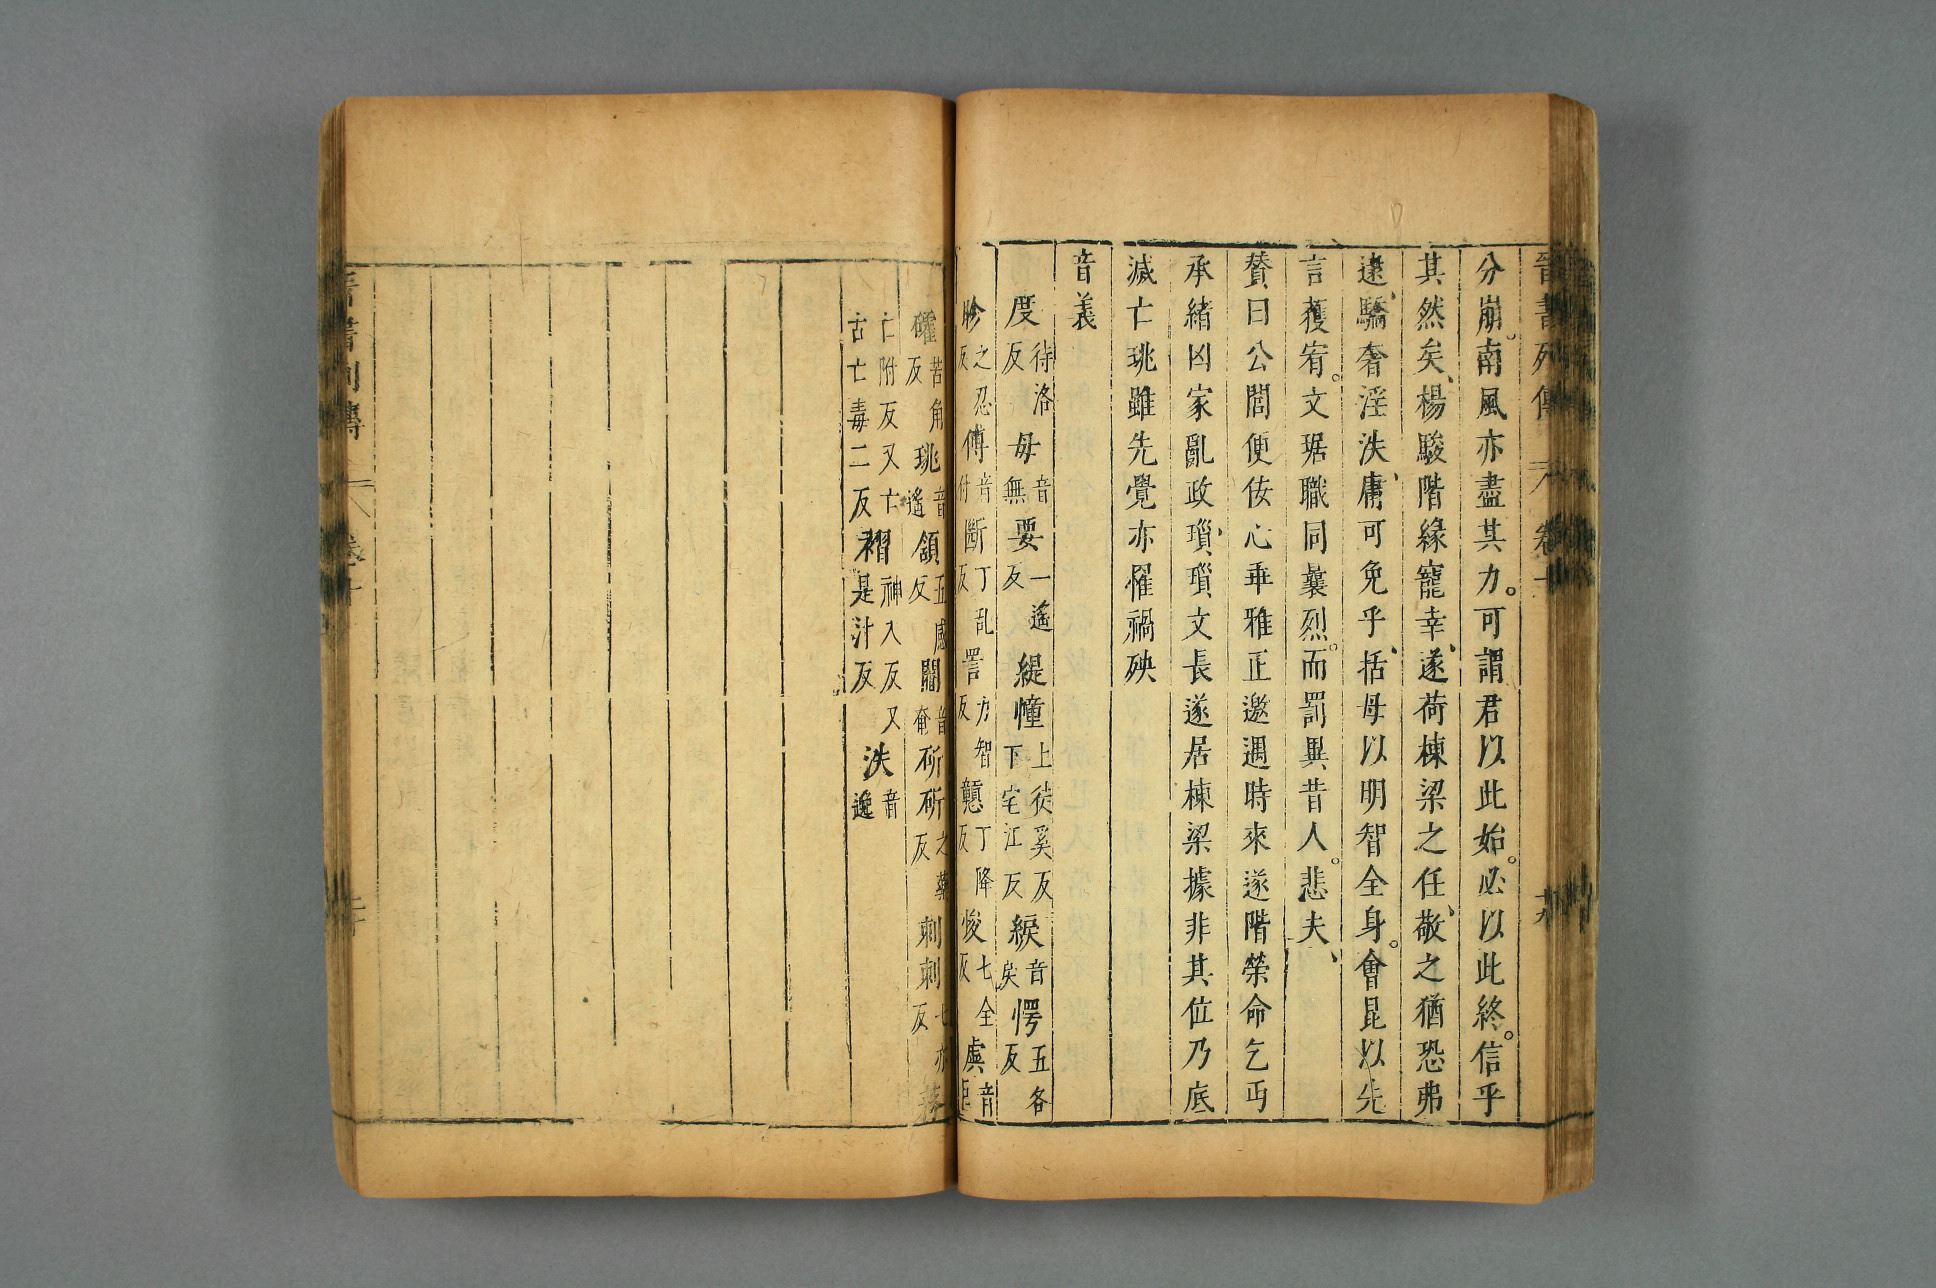 晉書列傳 八 卷十 十九
分崩南風亦盡其力可謂君以此始必以此終信乎
其然矣楊駿階緣寵幸遂荷棟梁之任敬之猶恐弗
逮驕奢淫泆庸可免乎括母以明智全身會昆以先
言獲宥文琚職同曩烈而罰異昔人悲夫
贊曰公閭便佞心乖雅正邀遇時來遂階榮命乞丐
承緒凶家亂政瑣瑣文長遂居棟梁據非其位乃底
滅亡珧雖先覺亦懼禍殃
音義
度待洛反毋音無要一遙反緹幢上徒奚反下宅江反綟音戾愕五各反
眕之忍反傅音付斷丁亂反詈力智反戇丁降反悛七全反虡音巨
礭苦角反珧音遙頷五感反闇音奄斫斫之藥反刺刺七亦反蓩
亡附反又亡古亡毒二反褶神入反又是汁反泆音逸
晉書列傳 八 卷十 二十